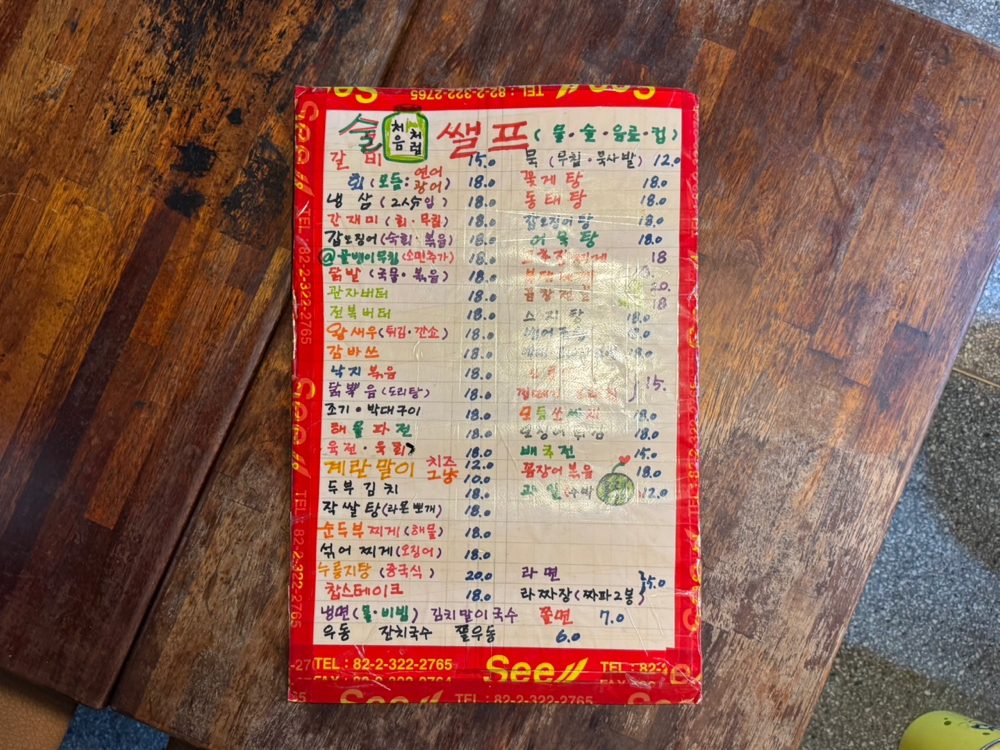 See
82-2-322-2765
TEL
See
술 처음처럼 쎌프 (물·술·음료·컵)
갈비 15.0
회 (모듬: 연어 광어) 18.0
냉삼 (2人分입) 18.0
간재미 (회·무침) 18.0
갑오징어 (숙회·볶음) 18.0
@골뱅이무침 (소면추가) 18.0
닭발 (국물·볶음) 18.0
관자버터 18.0
전복버터 18.0
왕새우 (튀김·깐쇼) 18.0
감바쓰 18.0
낙지볶음 18.0
닭볶음 (도리탕) 18.0
조기·박대구이 18.0
해물파전 18.0
육전·육회 18.0
계란말이 치즈 12.0
그냥 10.0
두부김치 18.0
작쌀탕 (라면뽀개) 18.0
순두부찌게 (해물) 18.0
섞어찌게 (오징어) 18.0
누룽지탕 (중국식) 20.0
찹스테이크 18.0
묵 (무침·묵사발) 12.0
꽃게탕 18.0
동태탕 18.0
갑오징어탕 18.0
어묵탕 18.0
18
20.
18
스지탕 18.0
18.0
18.0
15.
모듬쏘세지 18.0
18.0
배추전 15.0
꼼장어볶음 18.0
과일 (수박) 12.0
라면
라짜장 (짜파2봉) 5.0
냉면 (물·비빔) 김치말이국수 쫄면 7.0
우동 잔치국수 쫄우동 6.0
TEL : 82-2-322-2765 See TEL : 82-2
TEL : 82-2-322-2765
TEL : 82-2-322-2765
See
TEL : 82-2-322-2765